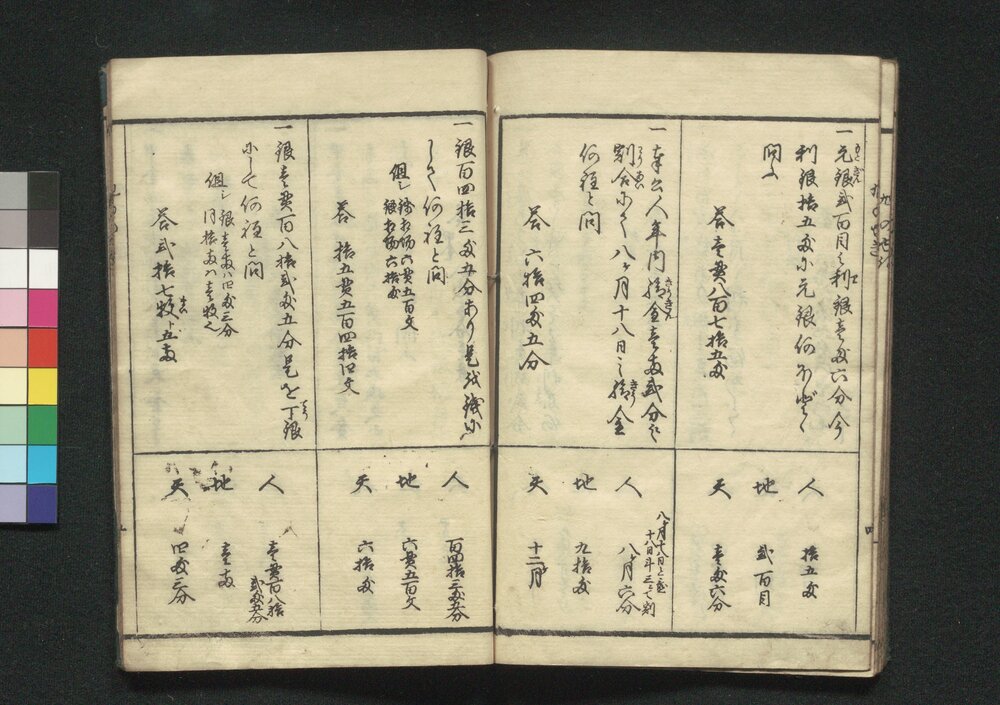 一元銀弐百目之利銀壱匁六分今
利銀拾五匁に元銀何ほどゝ
問ふ
答 壱貫八百七拾五匁
人 拾五匁
地 弐百目
天 壱匁六分
一奉公人年内給金壱両弐分之
割合にて八ヶ月十八日之給金
何程と問
答 六拾四匁五分
人 八ヶ月六分
地 九拾匁
天 十二ヶ月
一銀百四拾三匁五分あり是を銭に
して何程と問
但シ 銭相場六貫五百文
銀相場六拾匁
答 拾五貫五百四拾四文
人 百四拾三匁五分
地 六貫五百文
天 六拾匁
一銀壱貫百八拾弐匁五分是を丁銀
にして何程と問
但シ銀壱両ハ四匁三分
答 弐拾七枚ト五両
人 壱貫百八拾
弐匁五分
地 壱両
天 四匁三分